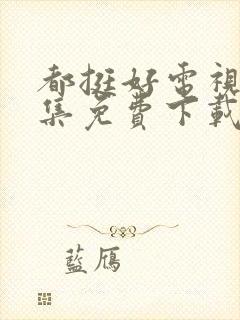 都挺好電視
集免費下載
藍鴈